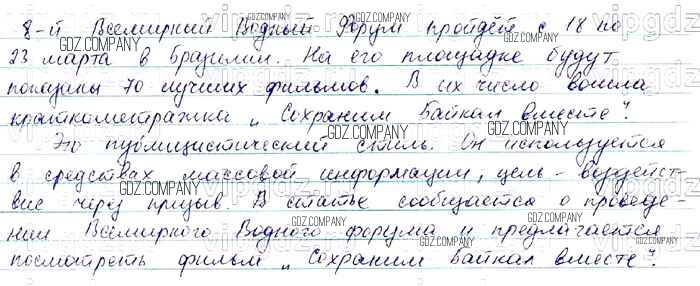 8-й Всемирный Водный Форум пройдёт с 18 по
23 марта в Бразилии. На его площадке будут
показаны 70 лучших фильмов. В их число вошла
короткометражка „Сохраним Байкал вместе".
Это публицистический стиль. Он используется
в средствах массовой информации, цель - воздейст-
вие через призыв. В статье сообщается о проведе-
нии Всемирного Водного форума и предлагается
посмотреть фильм „Сохраним Байкал вместе".
GDZ.COMPANY
GDZ.COMPANY
GDZ.COMPANY
GDZ.COMPANY
GDZ.COMPANY
GDZ.COMPANY
GDZ.COMPANY
GDZ.COMPANY
GDZ.COMPANY
GDZ.COMPANY
GDZ.COMPANY